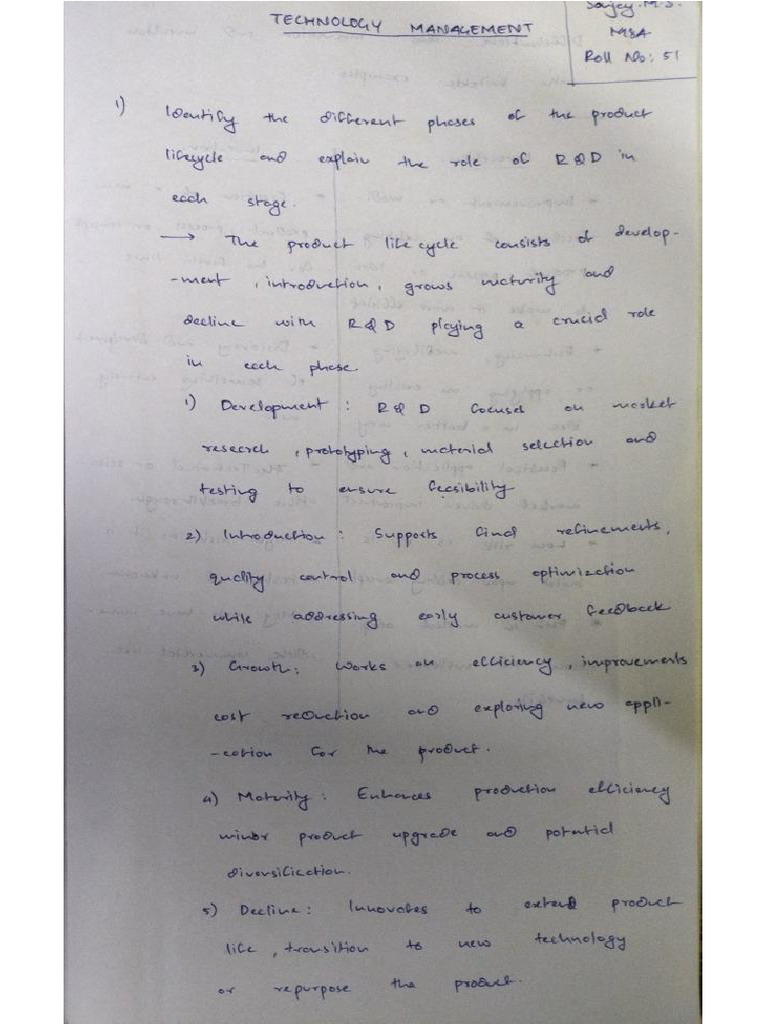 TECHNOLOGY MANAGEMENT
Sanjey. M. S.
MSA
Roll No: 51
1) Identify the different phases of the product
lifecycle and explain the role of R&D in
each stage.
→ The product life cycle consists of develop-
-ment, introduction, grows maturity and
decline with R&D playing a crucial role
in each phase.
1) Development: R&D focused on market
research, prototyping, material selection and
testing to ensure feasibility
2) Introduction: Supports final refinements,
quality control and process optimization
while addressing early customer feedback
3) Growth: Works on efficiency, improvements
cost reduction and exploring new appli-
-cation for the product.
4) Maturity: Enhances production efficiency
minor product upgrade and potential
diversification.
5) Decline: Innovates to extend product
life, transition to new technology
or repurpose the product.